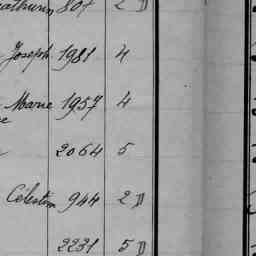 athurin 807 2 D
Joseph 1981 4
Marie 1957 4
2064 5
Célestin 944 2 D
2231 5 D